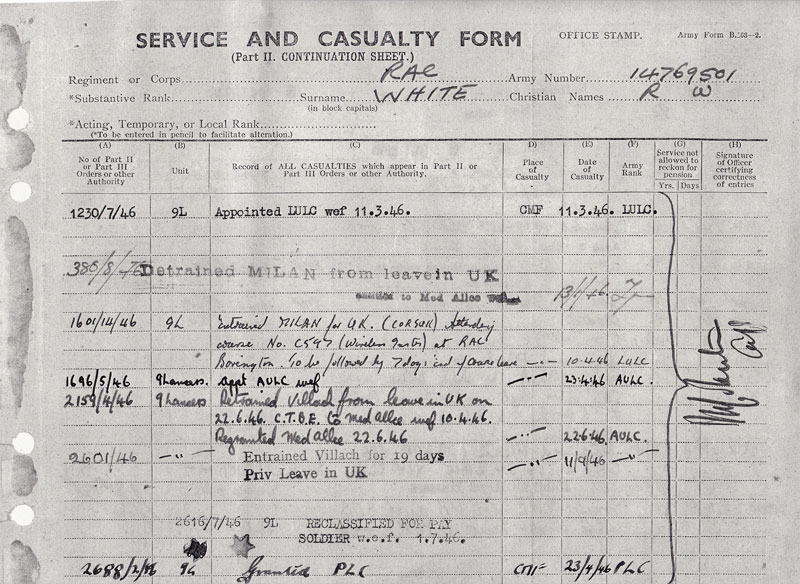 SERVICE AND CASUALTY FORM
OFFICE STAMP.
Army Form B.103—2.
(Part II. CONTINUATION SHEET.)
Regiment or Corps RAC Army Number 14769501
*Substantive Rank Surname WHITE Christian Names R W
(in block capitals)
*Acting, Temporary, or Local Rank
(*To be entered in pencil to facilitate alteration.)
(A) (B) (C) (D) (E) (F) (G) (H)
No of Part II or Part III Orders or other Authority
Unit
Record of ALL CASUALTIES which appear in Part II or Part III Orders or other Authority.
Place of Casualty
Date of Casualty
Army Rank
Service not allowed to reckon for pension
Yrs. Days
Signature of Officer certifying correctness of entries
1230/7/46 9L Appointed LULC wef 11.3.46. CMF 11.3.46. LULC.
Detrained MILAN from leave in UK
to Med Allce
1601/14/46 9L Entrained MILAN for UK. Attending
course No. C597 at RAC
Bovington. To be followed by 7 days leave —"— 10.4.46 LULC
1696/5/46 9Lancers. appt AULC wef —"— 23.4.46 AULC.
2159/4/46 9Lancers Detrained Villach from leave in UK on
22.6.46. C.T.B.E. to Med Allce wef 10.4.46.
Regranted Med Allce 22.6.46 —"— 22.6.46 AULC.
2601/46 —"— Entrained Villach for 19 days —"— 11/9/46 —"—
Priv Leave in UK
2616/7/46 9L RECLASSIFIED FOR PAY
SOLDIER w.e.f. 1.7.46.
9L Granted PLC CMF PLC